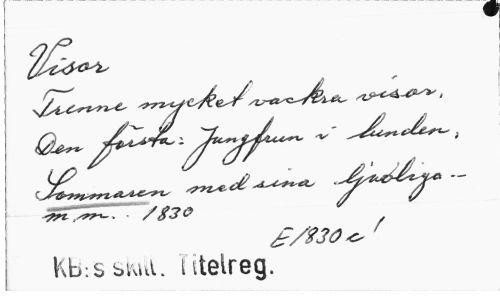 Visor
Trenne mycket vackra visor.
Den första: Jungfrun i lunden.
Sommaren med sina ljuvliga --
m.m. . 1830
E1830c!
KB:s skill. Titelreg.